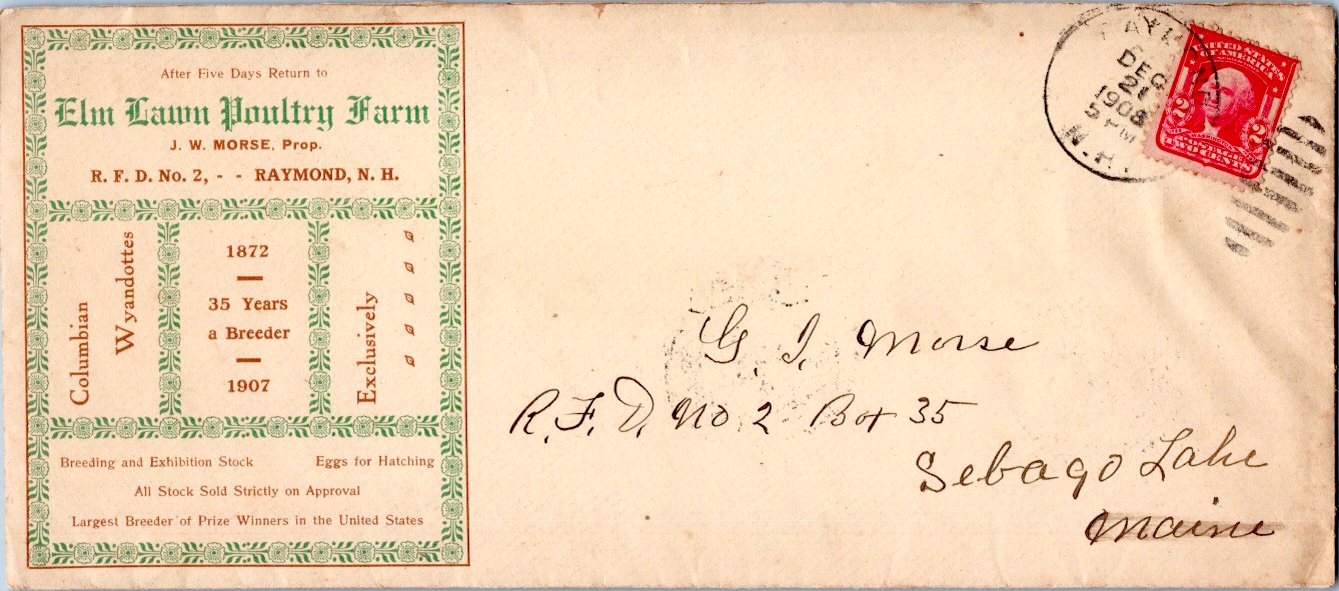 After Five Days Return to
Elm Lawn Poultry Farm
J. W. MORSE, Prop.
R. F. D. No. 2, - - RAYMOND, N. H.
Columbian
Wyandottes
1872
35 Years
a Breeder
1907
Exclusively
Breeding and Exhibition Stock Eggs for Hatching
All Stock Sold Strictly on Approval
Largest Breeder of Prize Winners in the United States
RAYMOND
DEC
21
1908
5 PM
N.H.
UNITED STATES
OF AMERICA
2 2
POSTAGE
TWO CENTS
G. I. Morse
R. F. D. No 2 Box 35
Sebago Lake
Maine